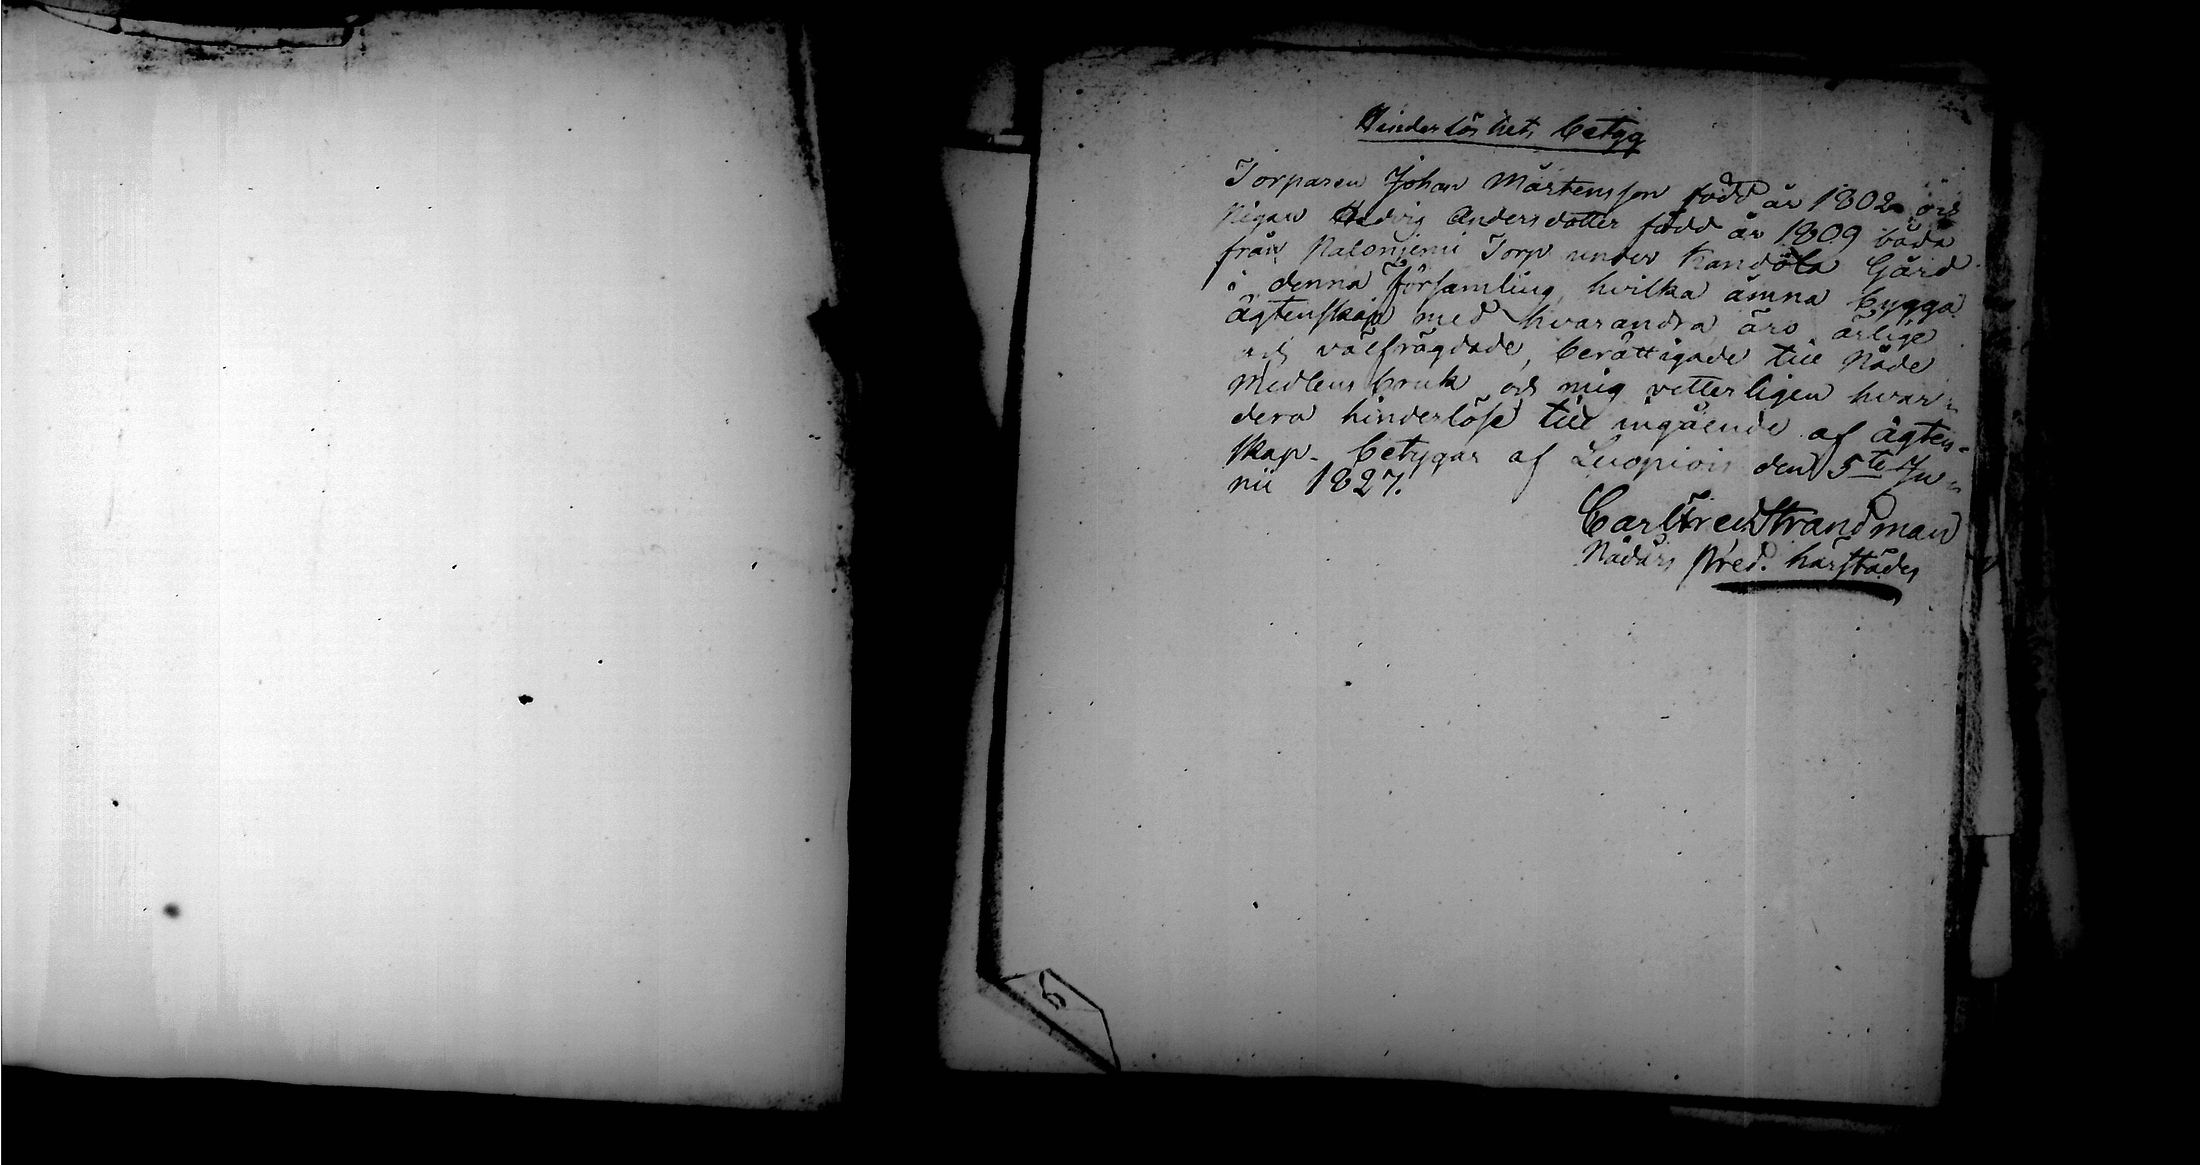 Hinderlöshets betyg
Torparen Johan Mårtensson född år 1802 och
Pigan Hedvig Andersdotter född år 1809 båda
från Torp under Kandola Gård
i denna Församling, hvilka ämna bygga
ägtenskap med hvarandra, äro ärlige
och välfrägdade, berättigade till Nåde
Medlens bruk och mig vetterligen hvar-
dera hinderlöse till ingående af ägten-
skap. betygar af Luopiois den 5te Ju-
nii 1827.
Carl Fred Strandman
Nådårs Pred. härstädes